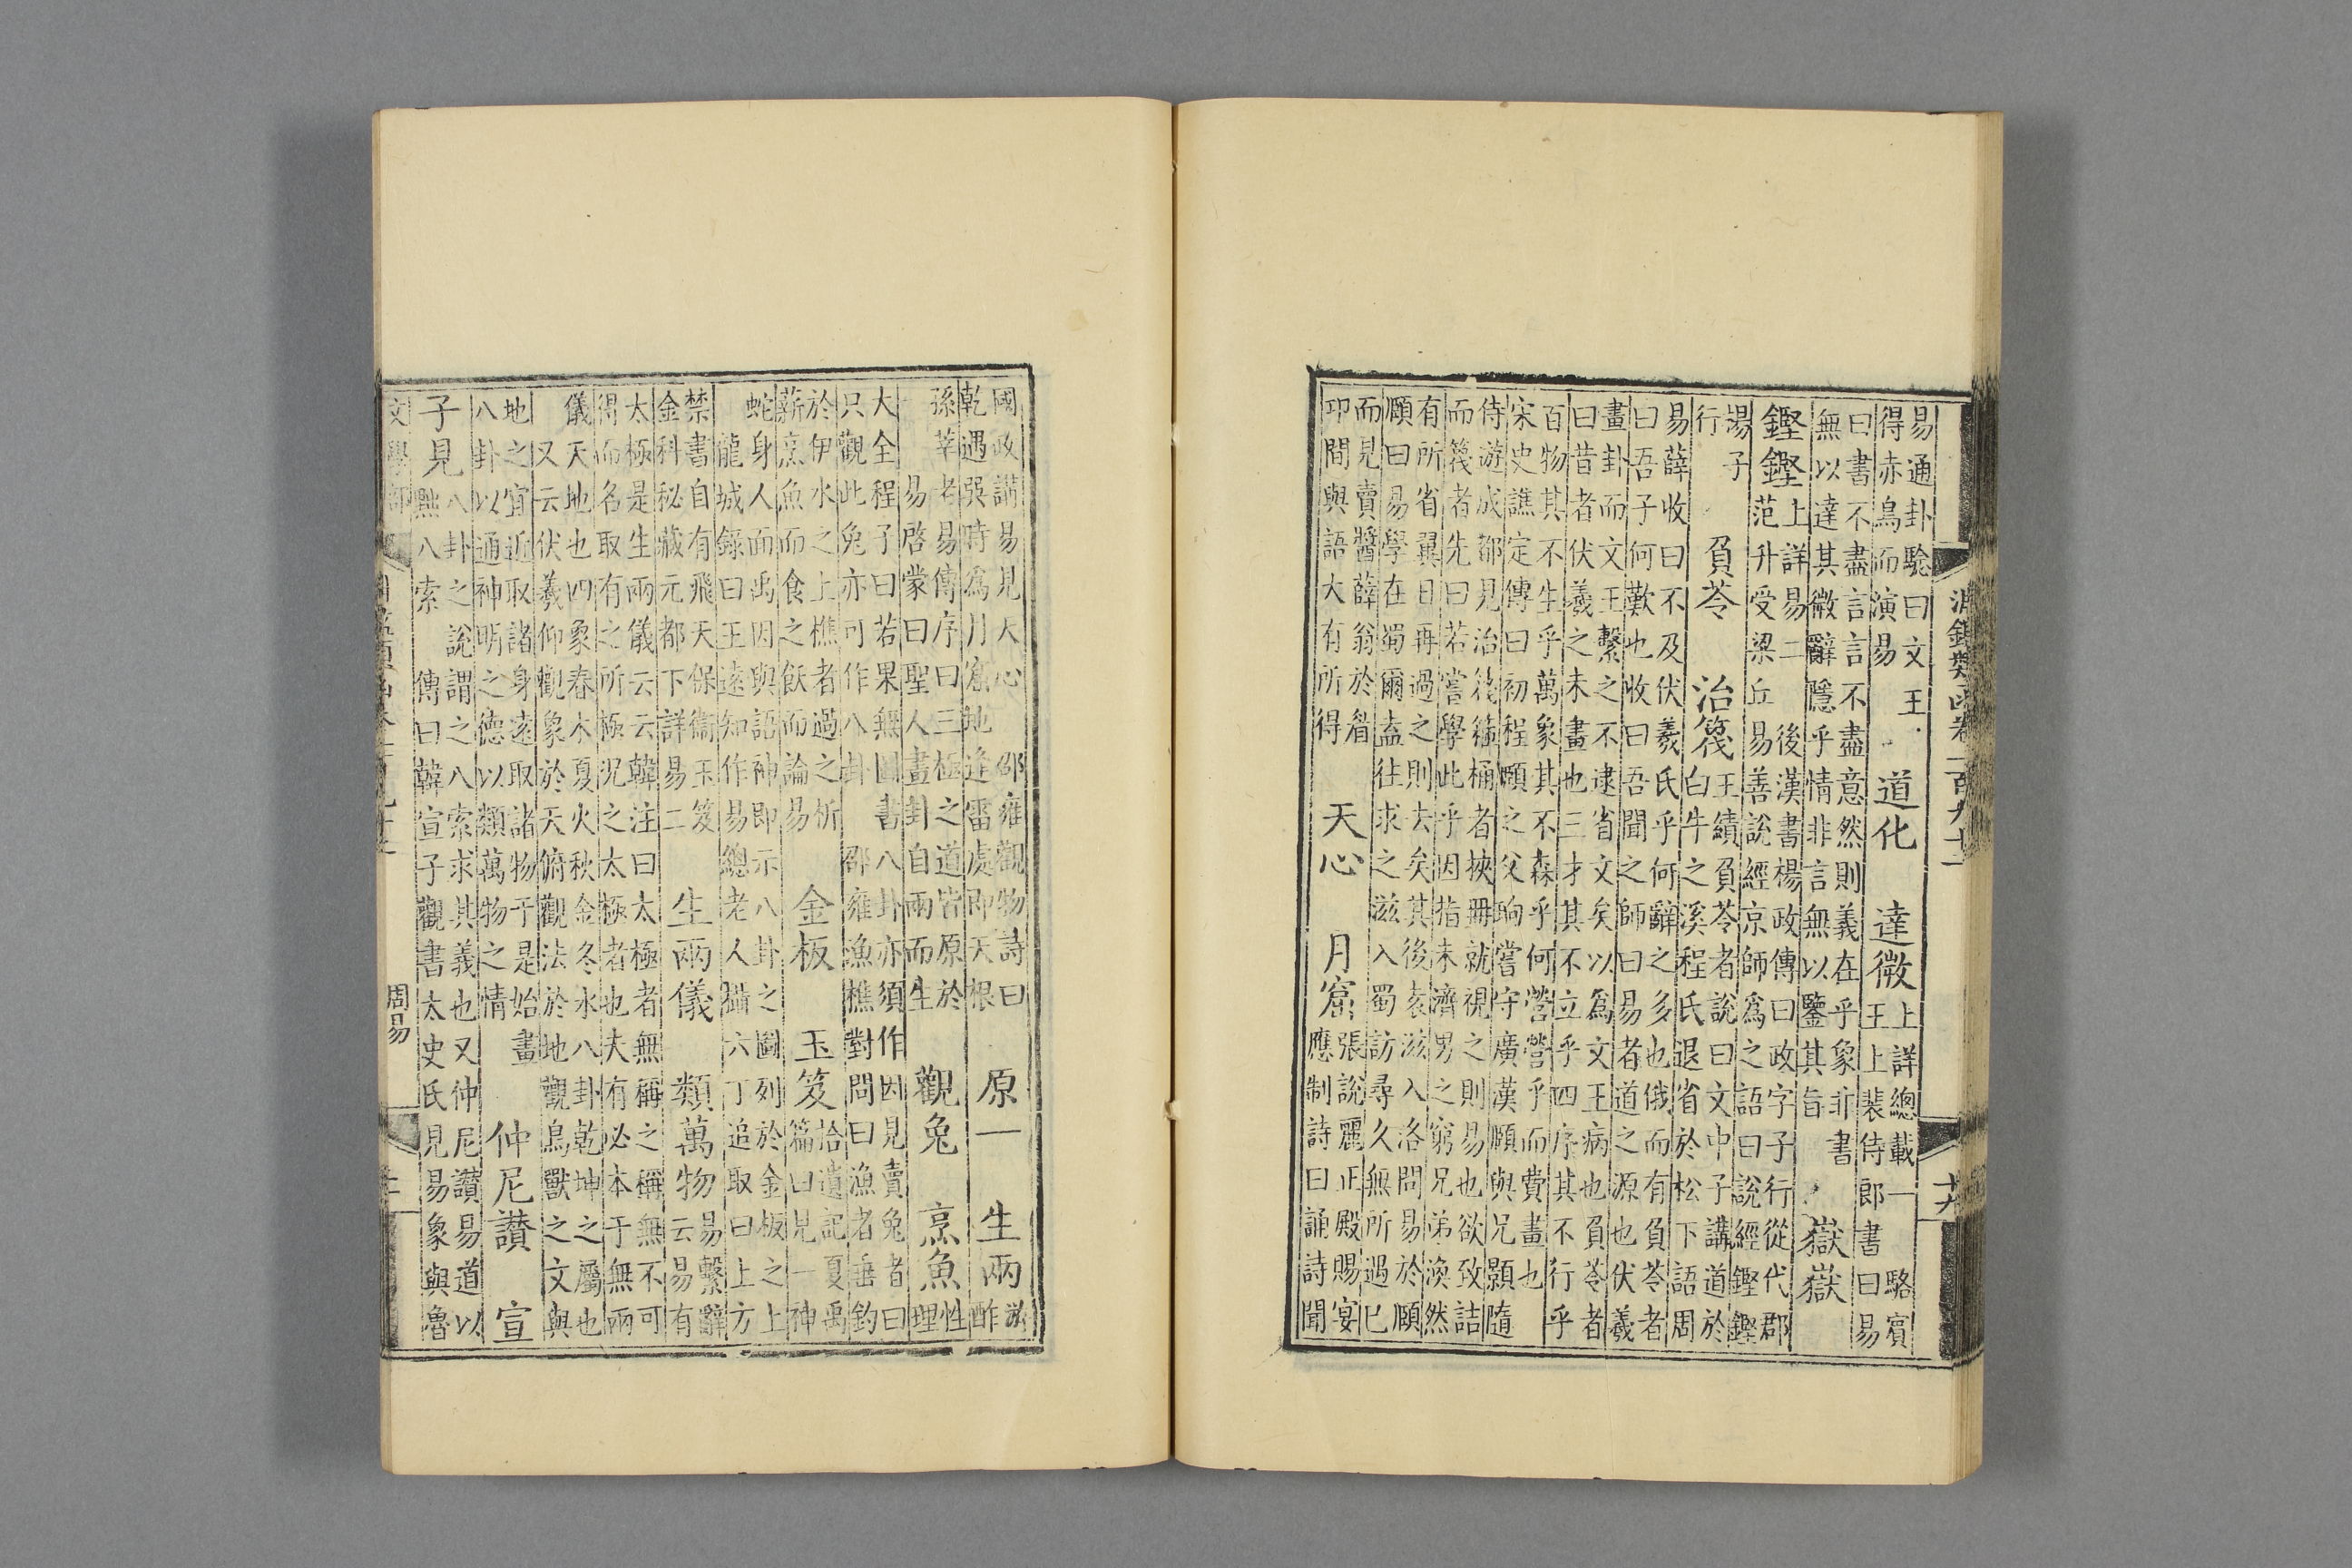 淵鑑類函卷一百九十二
十六
易通卦驗曰文王
得赤鳥而演易
道化 達微
上詳總載一 駱賓
王上裴侍郎書曰易
曰書不盡言言不盡意然則義在乎象非書
無以達其微辭隱乎情非言無以鑒其旨
嶽嶽
鏗鏗
上詳易二 後漢書楊政傳曰政字子行從代郡
范升受梁丘易善說經京師爲之語曰說經鏗鏗
楊子
行
負苓 治篾
王績負苓者說曰文中子講道於
白牛之溪程氏退省於松下語周
易薛收曰不及伏羲氏乎何辭之多也俄而有負苓者
曰吾子何歎也收曰吾聞之師曰易者道之源也伏羲
畫卦而文王繫之不逮省文矣以爲文王病也負苓者
曰昔者伏羲之未畫也三才其不立乎四序其不行乎
百物其不生乎萬象其不森乎何營營乎而費畫也
宋史譙定傳曰初程頤之父珦嘗守廣漢頤與兄顥隨
侍游成都見治篾箍桶者挾冊就視之則易也欲致詰
而篾者先曰若嘗學此乎因指未濟男之窮兄弟渙然
有所省翼日再過之則去矣其後袁滋入洛問易於頤
頤曰易學在蜀爾盍往求之滋入蜀訪尋久無所遇已
而見賣醬薛翁於眉
卭間與語大有所得
天心 月窟
張說麗正殿賜宴
應制詩曰誦詩聞
國政講易見天心 邵雍觀物詩曰
乾遇巽時爲月窟地逢雷處即天根
原一 生兩
游
酢
孫莘老易傳序曰三極之道皆原於
易啓蒙曰聖人畫卦自兩而生
觀兔 烹魚
性
理
大全程子曰若果無圖書八卦亦須作因見賣兔者曰
只觀此兔亦可作八卦 邵雍漁樵對問曰漁者垂釣
於伊水之上樵者過之析
薪烹魚而食之飫而論易
金板 玉笈
拾遺記夏禹
篇曰見一神
蛇身人面禹因與語神即示八卦之圖列於金板之上
龍城錄曰王遠知作易總老人攝六丁追取曰上方
禁書自有飛天保衞玉笈
金科秘藏元都下詳易二
生兩儀 類萬物
易繫辭
云易有
太極是生兩儀云云韓注曰太極者無稱之稱無不可
得而名取有之所極況之太極者也夫有必本于無兩
儀天地也四象春木夏火秋金冬水八卦乾坤之屬也
又云伏羲仰觀象於天俯觀法於地觀鳥獸之文與
地之宜近取諸身遠取諸物于是始畫
八卦以通神明之德以類萬物之情
仲尼讚 宣
子見
八卦之說謂之八索求其義也又仲尼讚易道以
黜八索 傳曰韓宣子觀書太史氏見易象與魯
文學部
周易